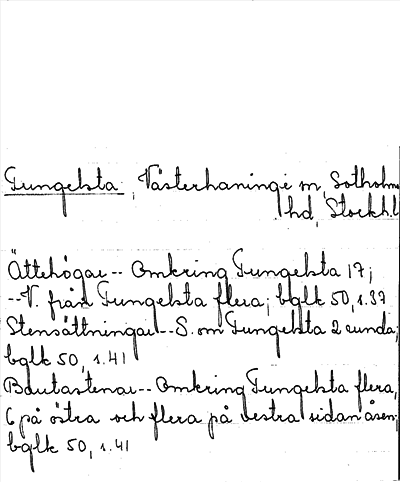 Tungelsta, Västerhaninge sn, Sotholms
hd, Stockh.l
Ättehögar-- Omkring Tungelsta 17;
--V. från Tungelsta flera; bglk 50, s.37
Stensättningar--S. om Tungelsta 2 runda;
bglk 50, s.41
Bautastenar--Omkring Tungelsta flera,
6 på östra och flera på vestra sidan åsen;
bglk 50, s.41